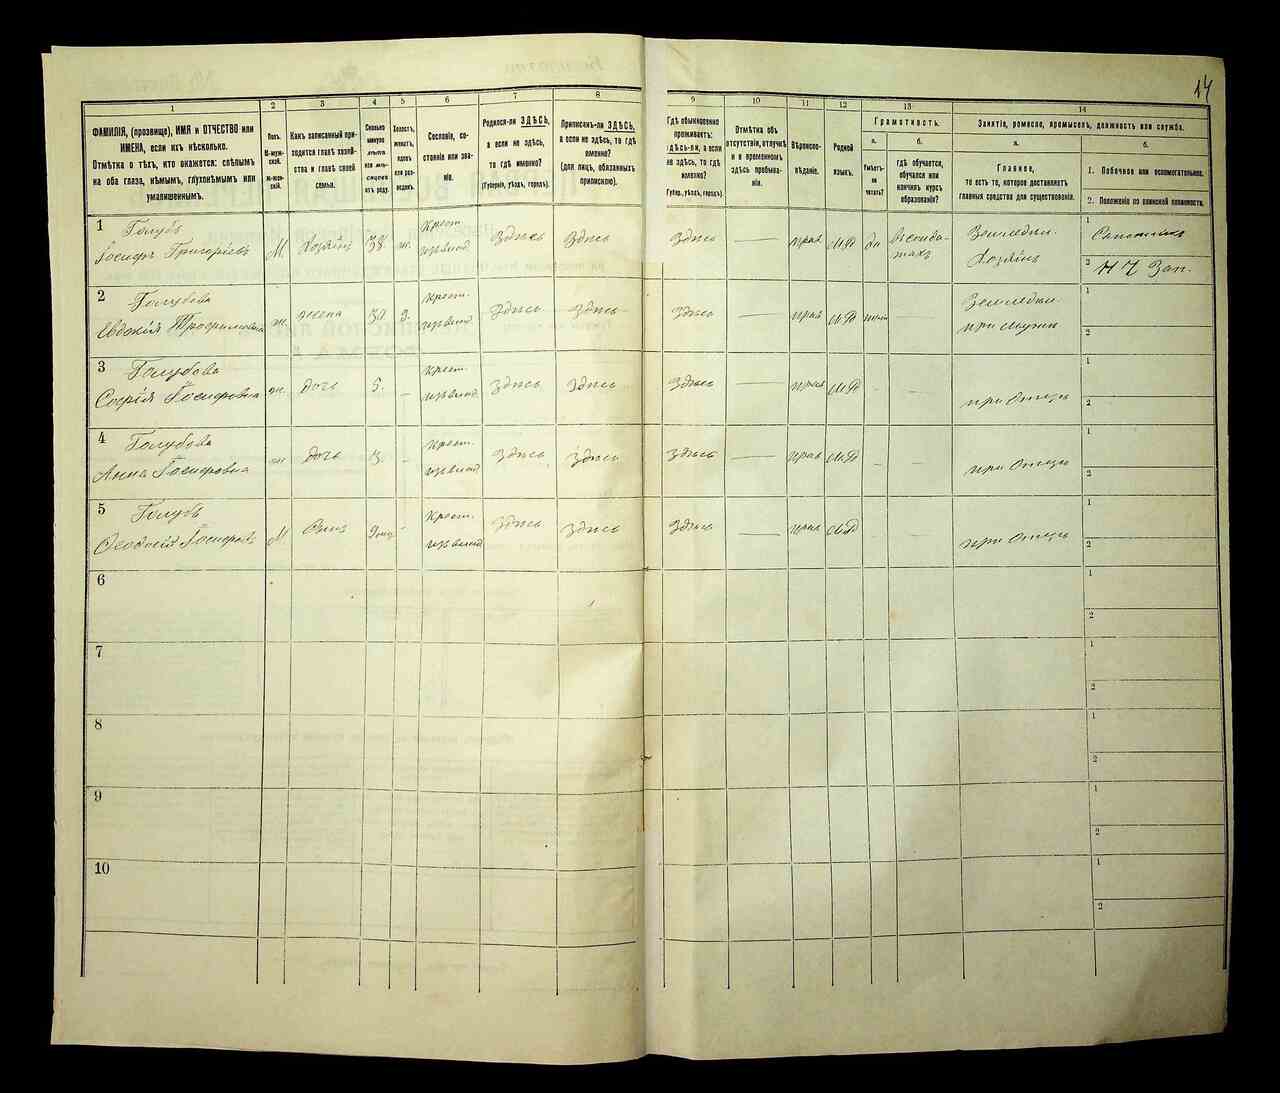 14
1
2
3
4
5
6
7
8
9
10
11
12
13
14
ФАМИЛІЯ, (прозвище), ИМЯ и ОТЧЕСТВО или
ИМЕНА, если ихъ нѣсколько.
Отмѣтка о тѣхъ, кто окажется: слѣпымъ
на оба глаза, нѣмымъ, глухонѣмымъ или
умалишеннымъ.
Полъ.
М-муж-
ской.
ж-жен-
скій.
Какъ записанный при-
ходится главѣ хозяй-
ства и главѣ своей
семьи.
Сколько
минуло
лѣтъ
или мѣ-
сяцевъ
отъ роду.
Холостъ,
женатъ,
вдовъ
или раз-
веденъ.
Сословіе, со-
стояніе или зва-
ніе.
Родился-ли ЗДѢСЬ,
а если не здѣсь,
то гдѣ именно?
(Губернія, уѣздъ, городъ).
Приписанъ-ли ЗДѢСЬ,
а если не здѣсь, то гдѣ
именно?
(для лицъ, обязанныхъ
припискою).
Гдѣ обыкновенно
проживаетъ:
здѣсь-ли, а если
не здѣсь, то гдѣ
именно?
(Губер., уѣздъ, городъ).
Отмѣтка объ
отсутствіи, отлучкѣ
и о временномъ
здѣсь пребыва-
ніи.
Вѣроиспо-
вѣданіе.
Родной
языкъ.
Грамотность.
а.
Умѣетъ-
ли
читать?
б.
гдѣ обучается,
обучался или
кончилъ курсъ
образованія?
Занятія, ремесло, промыселъ, должность или служба.
а.
Главное,
то есть то, которое доставляетъ
главныя средства для существованія.
б.
1. Побочное или вспомогательное.
2. Положеніе по воинской повинности.
1 Голубъ
Іосифъ Григорьевъ М. Хозяинъ 38 ж. Крест. Здѣсь Здѣсь Здѣсь — прав МР да Хозяинъ
1
2 Зап.
2 Голубова
Евдокія Трофимовна ж. жена 30 З. Крест. Здѣсь Здѣсь Здѣсь — прав МР — при мужи
1
2
3 Голубова
Софія Іосифовна ж. дочь 5. — Крест. Здѣсь Здѣсь Здѣсь — прав МР - - при Отцѣ
1
2
4 Голубова
Анна Іосифовна ж дочь 3. - Крест. Здѣсь Здѣсь Здѣсь — прав МР - - при Отцѣ
1
2
5 Голубъ
Ѳеодосій Іосифовъ М Сынъ Крест. Здѣсь Здѣсь Здѣсь — прав МР при Отцѣ
1
2
6
1
2
7
1
2
8
1
2
9
1
2
10
1
2